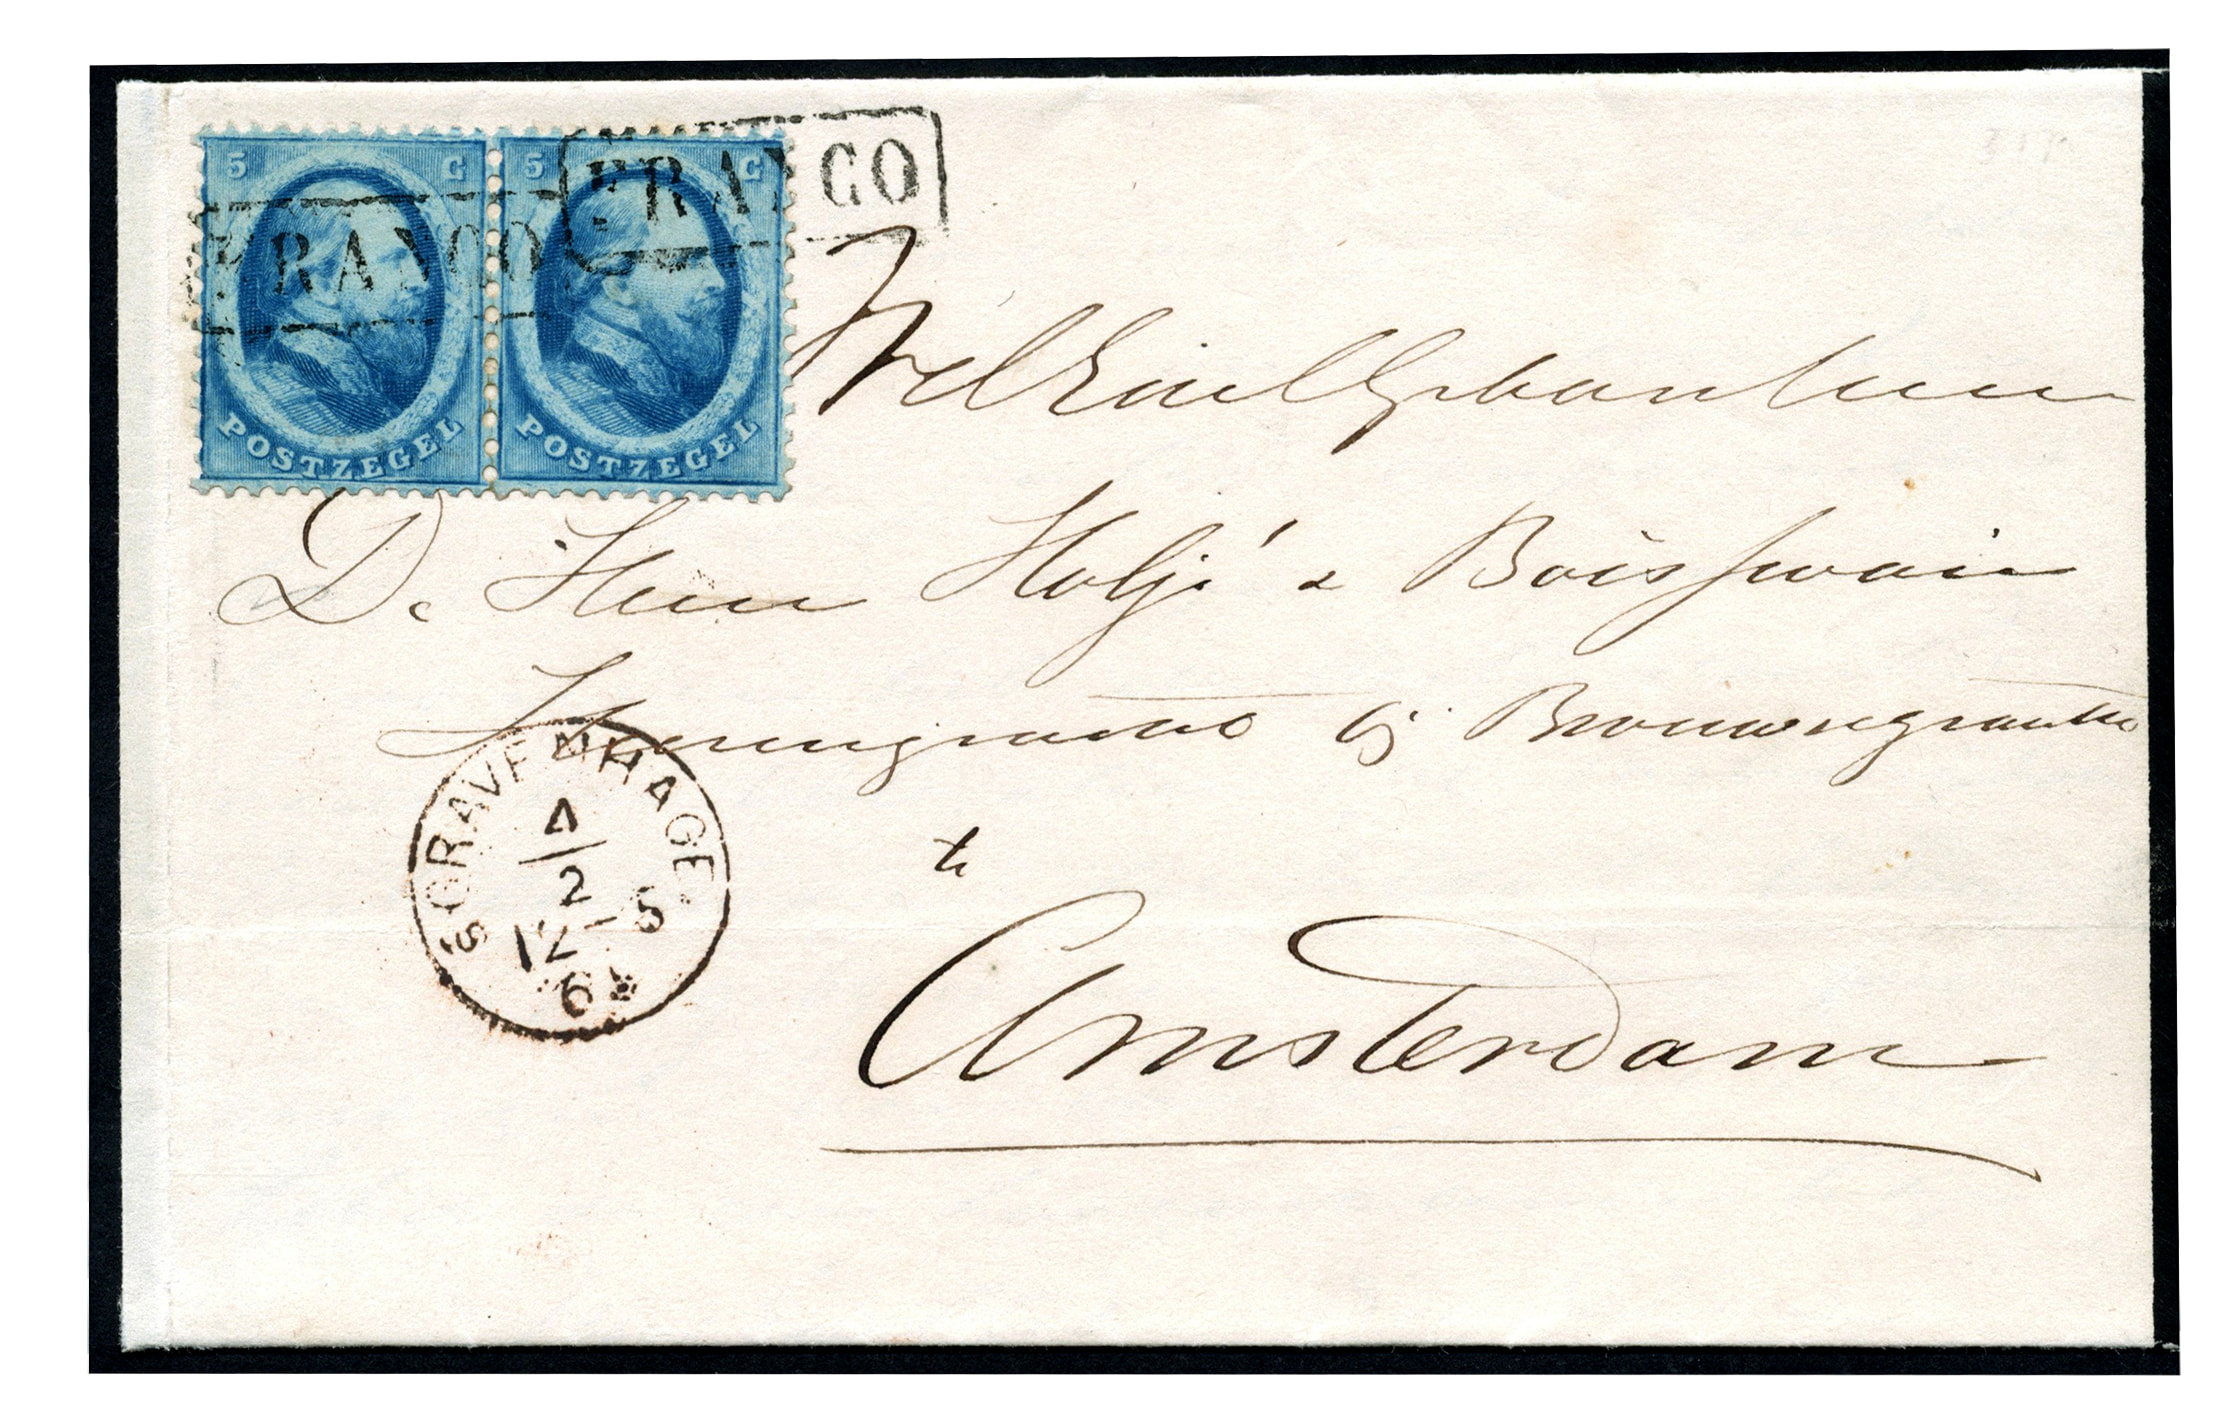 5 C 5 C
FRANCO
FRANCO
POSTZEGEL POSTZEGEL
De Heeren Holjé & Boissevain
Heerengracht bij Brouwersgracht
S GRAVENHAGE
4
2
12-5
6
te
Amsterdam